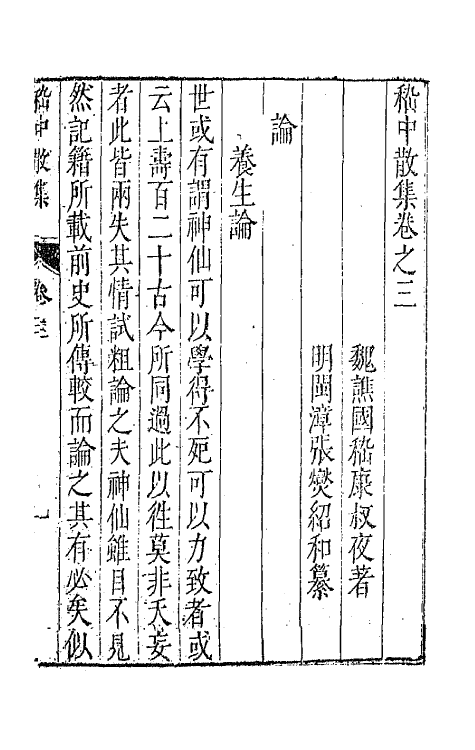 嵇中散集卷之三
魏譙國嵇康叔夜著
明閩漳張燮紹和纂
論
養生論
世或有謂神仙可以學得不死可以力致者或
云上壽百二十古今所同過此以徃莫非夭妄
者此皆兩失其情試粗論之夫神仙雖目不見
然記籍所載前史所傳較而論之其有必矣似
嵇中散集
卷三
一